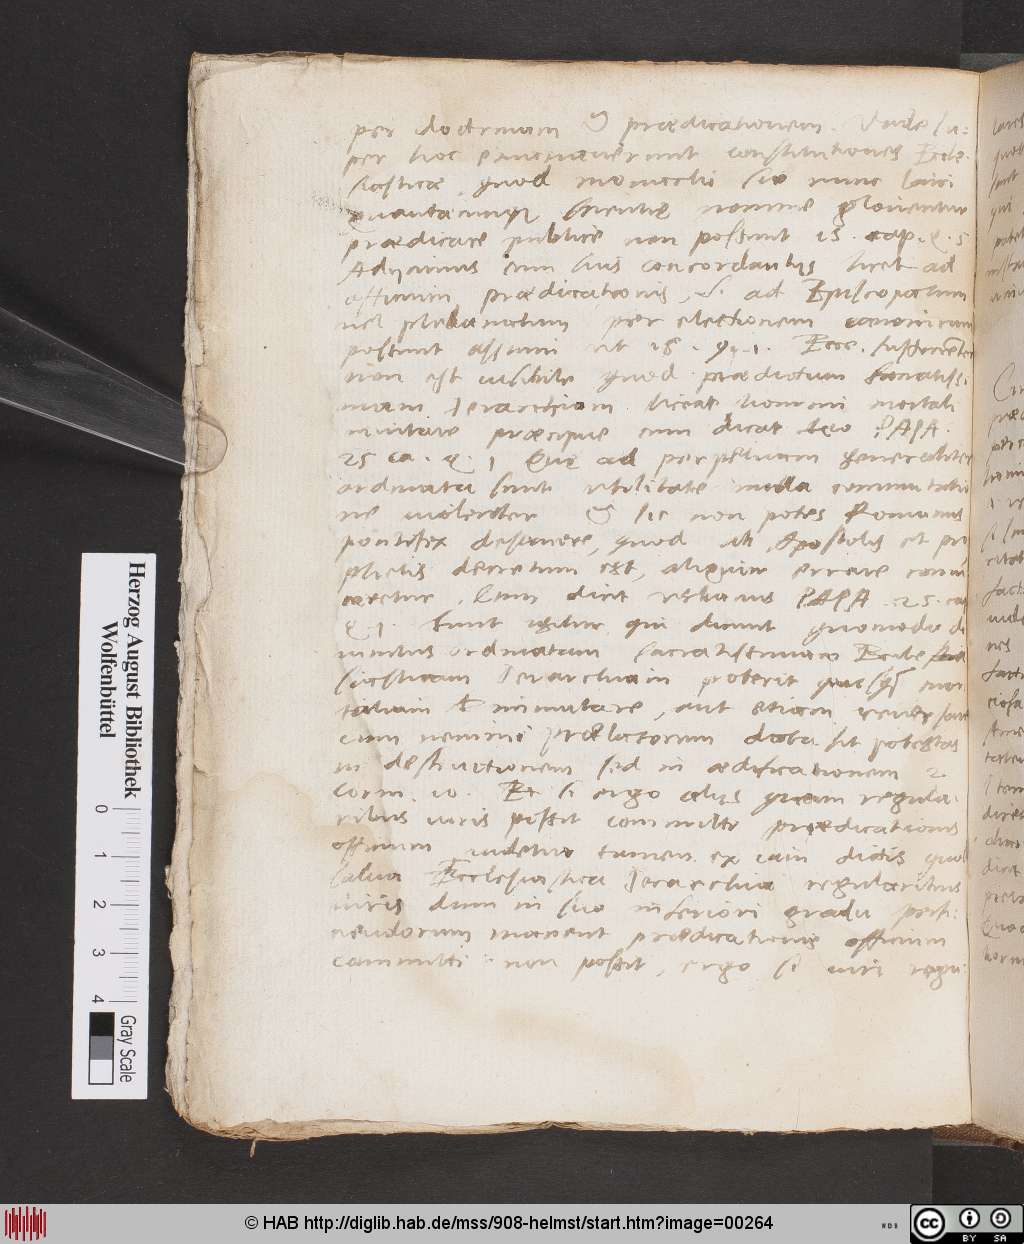 per doctrinam & prædicationem. Unde su-
per hoc emanaverunt constitutiones Eccle-
siasticæ, quod monachi sive nunc laici
quantacunque scientie nomine glorientur
prædicare publice non possunt 15. cap. q. 5
Adijcimus cum suis concordantijs licet ad
officium prædicationis, ad Episcopatum
vel plebanatum per electionem canonicam
possunt assumi ut 18. q. 1. Ecce sufficienter
non est visibile quod prædictam sacratissi-
mam Jerarchiam liceat homini mortali
mutare præcipue cum dicat Leo PAPA.
25 ca. q. 1 Que ad perpetuam generaliter
ordinata sunt utilitate nulla commutatio
ne violenter & sic non potes Romanus
pontifex desinere, quod ab Apostolis et pro
phetis decretum est, aliquin errare convin
ceretur. Cum dicit PAPA 25. ca
q. 1. Sunt igitur qui dicunt quomodo di
vinitus ordinatam sacratissimam Eccle
siasticam Jerarchiam poterit quisque mor
talium immutare, aut etiam
cum nemini prælatorum data sit potestas
in destructionem sed in ædificationem 2
Corin. 10. Et si ergo alijs quam regula-
ribus viris possit committi prædicationis
officium videtur tamen ex iam dictis quod
salva Ecclesiastica Jerarchia regularibus
viris dum in suo inferiori gradu perfi-
ciendorum manent prædicationis officium
committi non possit, ergo si viri regu-
Herzog August Bibliothek
Wolfenbüttel
0 1 2 3 4
Gray Scale
© HAB http://diglib.hab.de/mss/908-helmst/start.htm?image=00264
WDB
cc BY SA